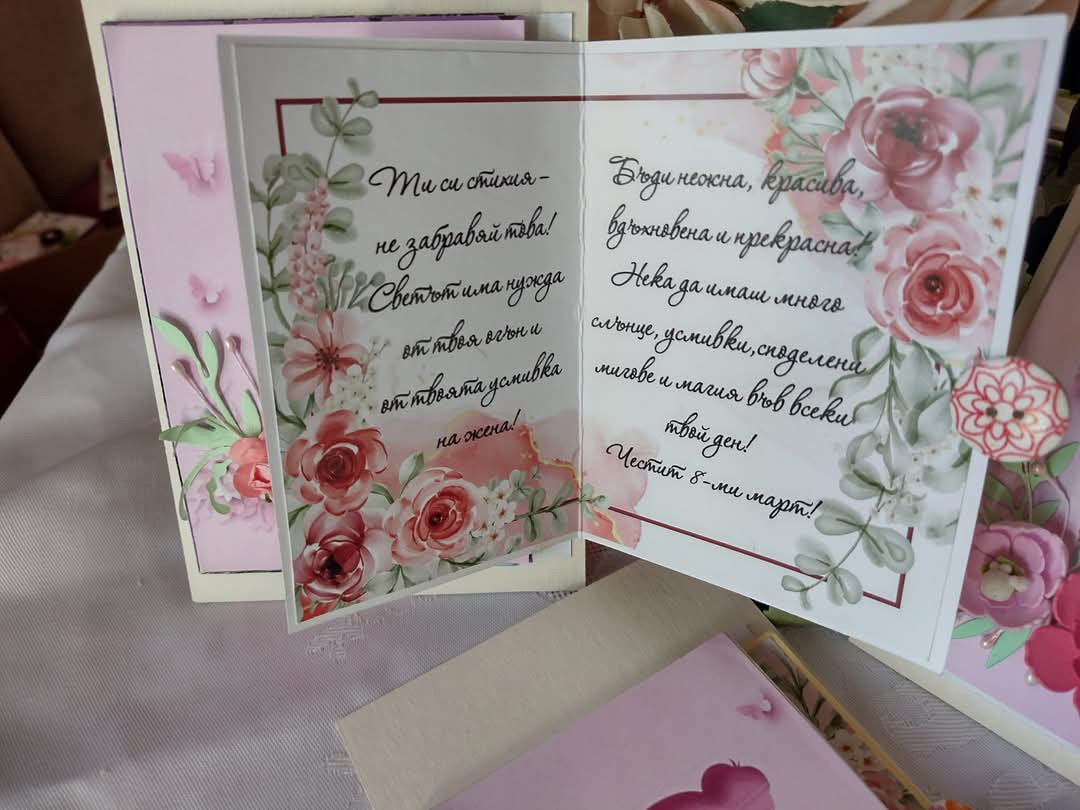 Ти си стихия –
не забравяй това!
Светът има нужда
от твоя огън и
от твоята усмивка
на жена!
Бъди нежна, красива,
вдъхновена и прекрасна!
Нека да имаш много
слънце, усмивки, споделени
мигове и магия във всеки
твой ден!
Честит 8-ми март!